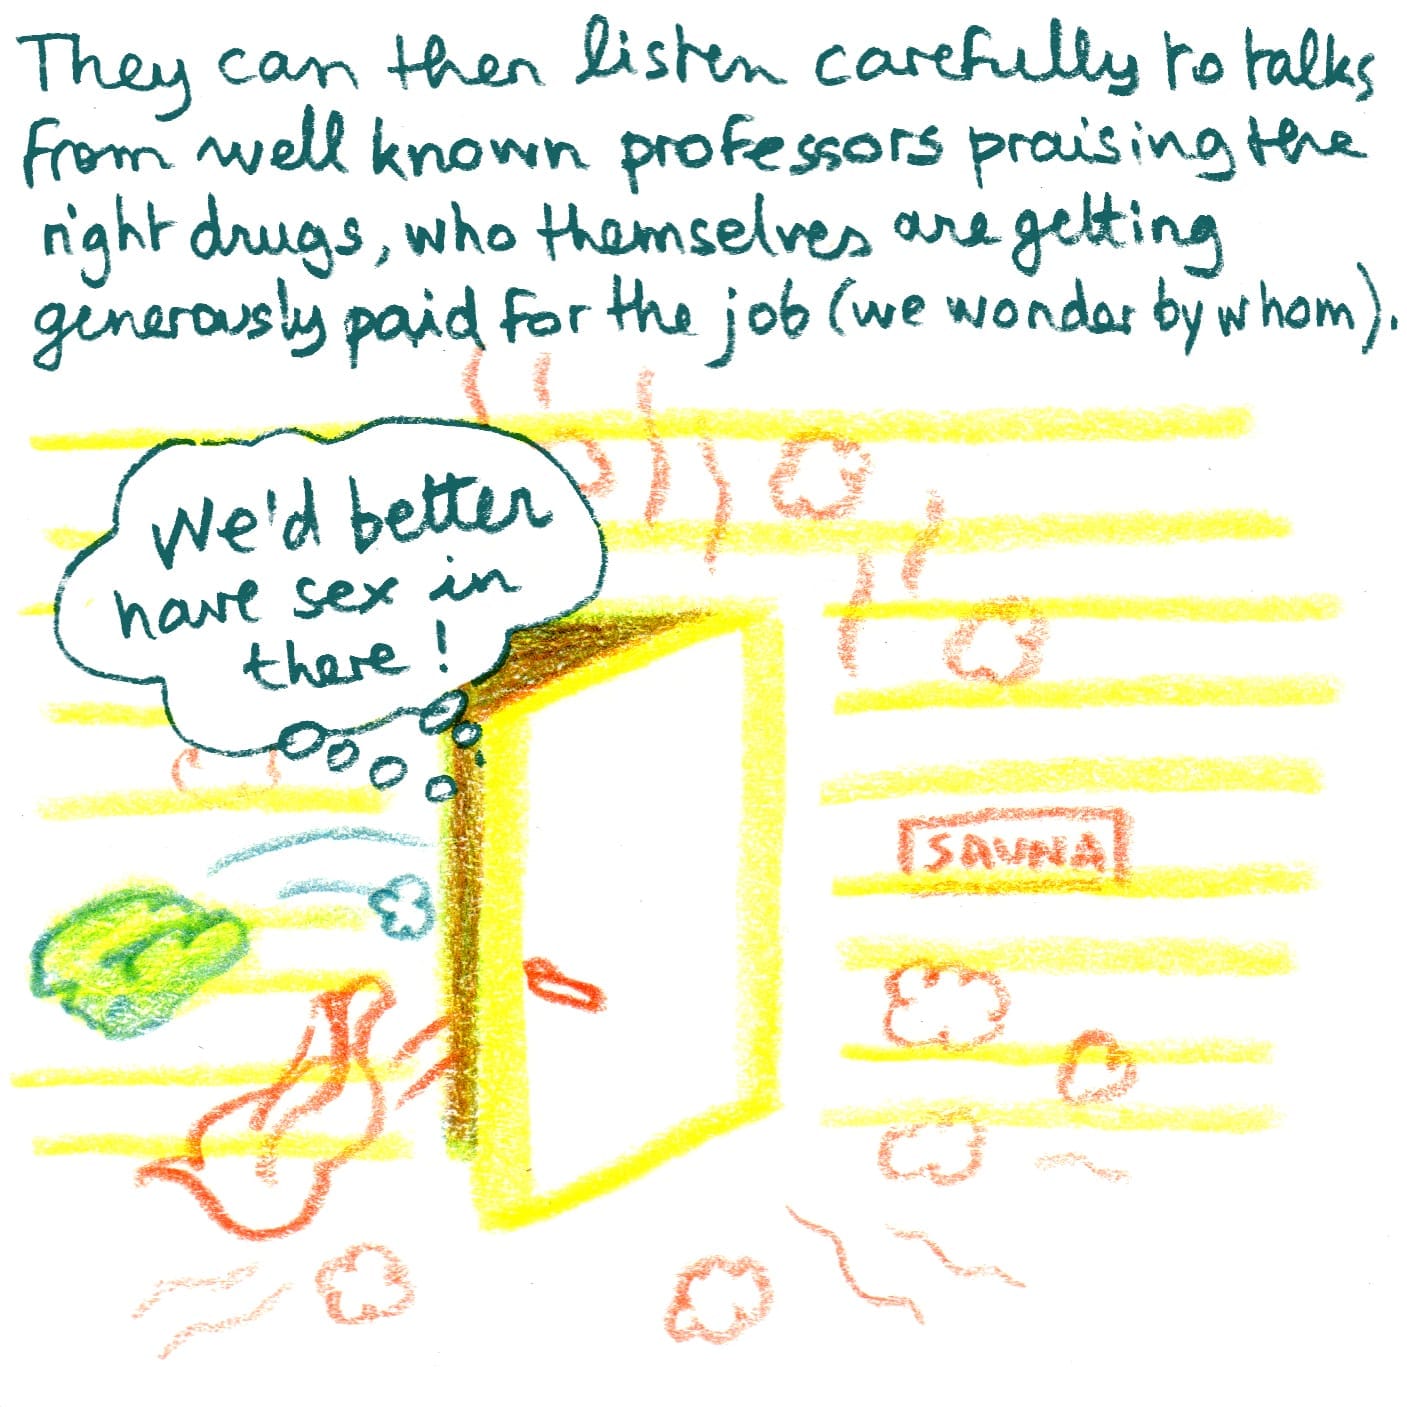 They can then listen carefully to talks
from well known professors praising the
right drugs, who themselves are getting
generously paid for the job (we wonder by whom).
We'd better
have sex in
there!
SAUNA